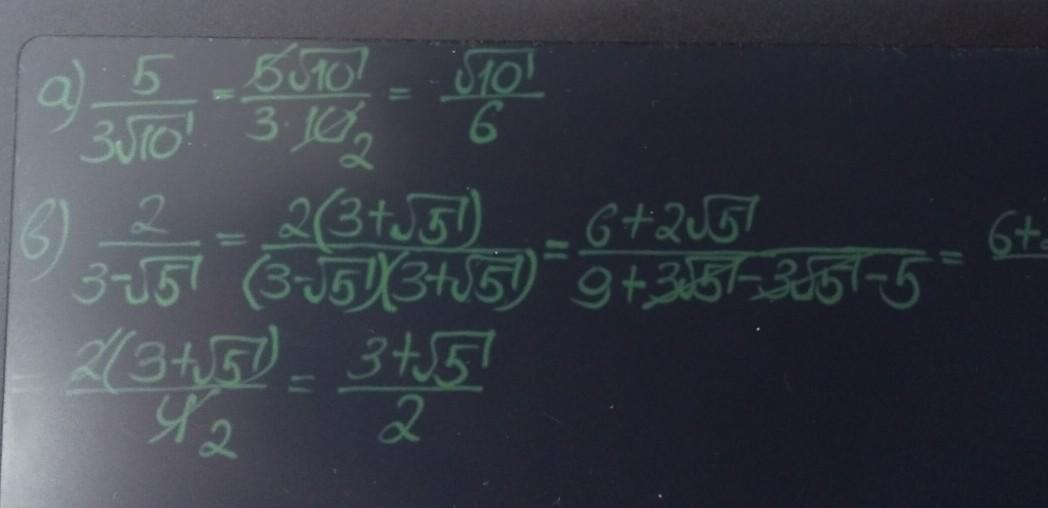 а) 5/(3√10) = 5√10/(3·10) 2 = √10/6
в) 2/(3-√5) = 2(3+√5)/((3-√5)(3+√5)) = (6+2√5)/(9+3√5-3√5-5) = 6+
= 2(3+√5)/4 2 = (3+√5)/2